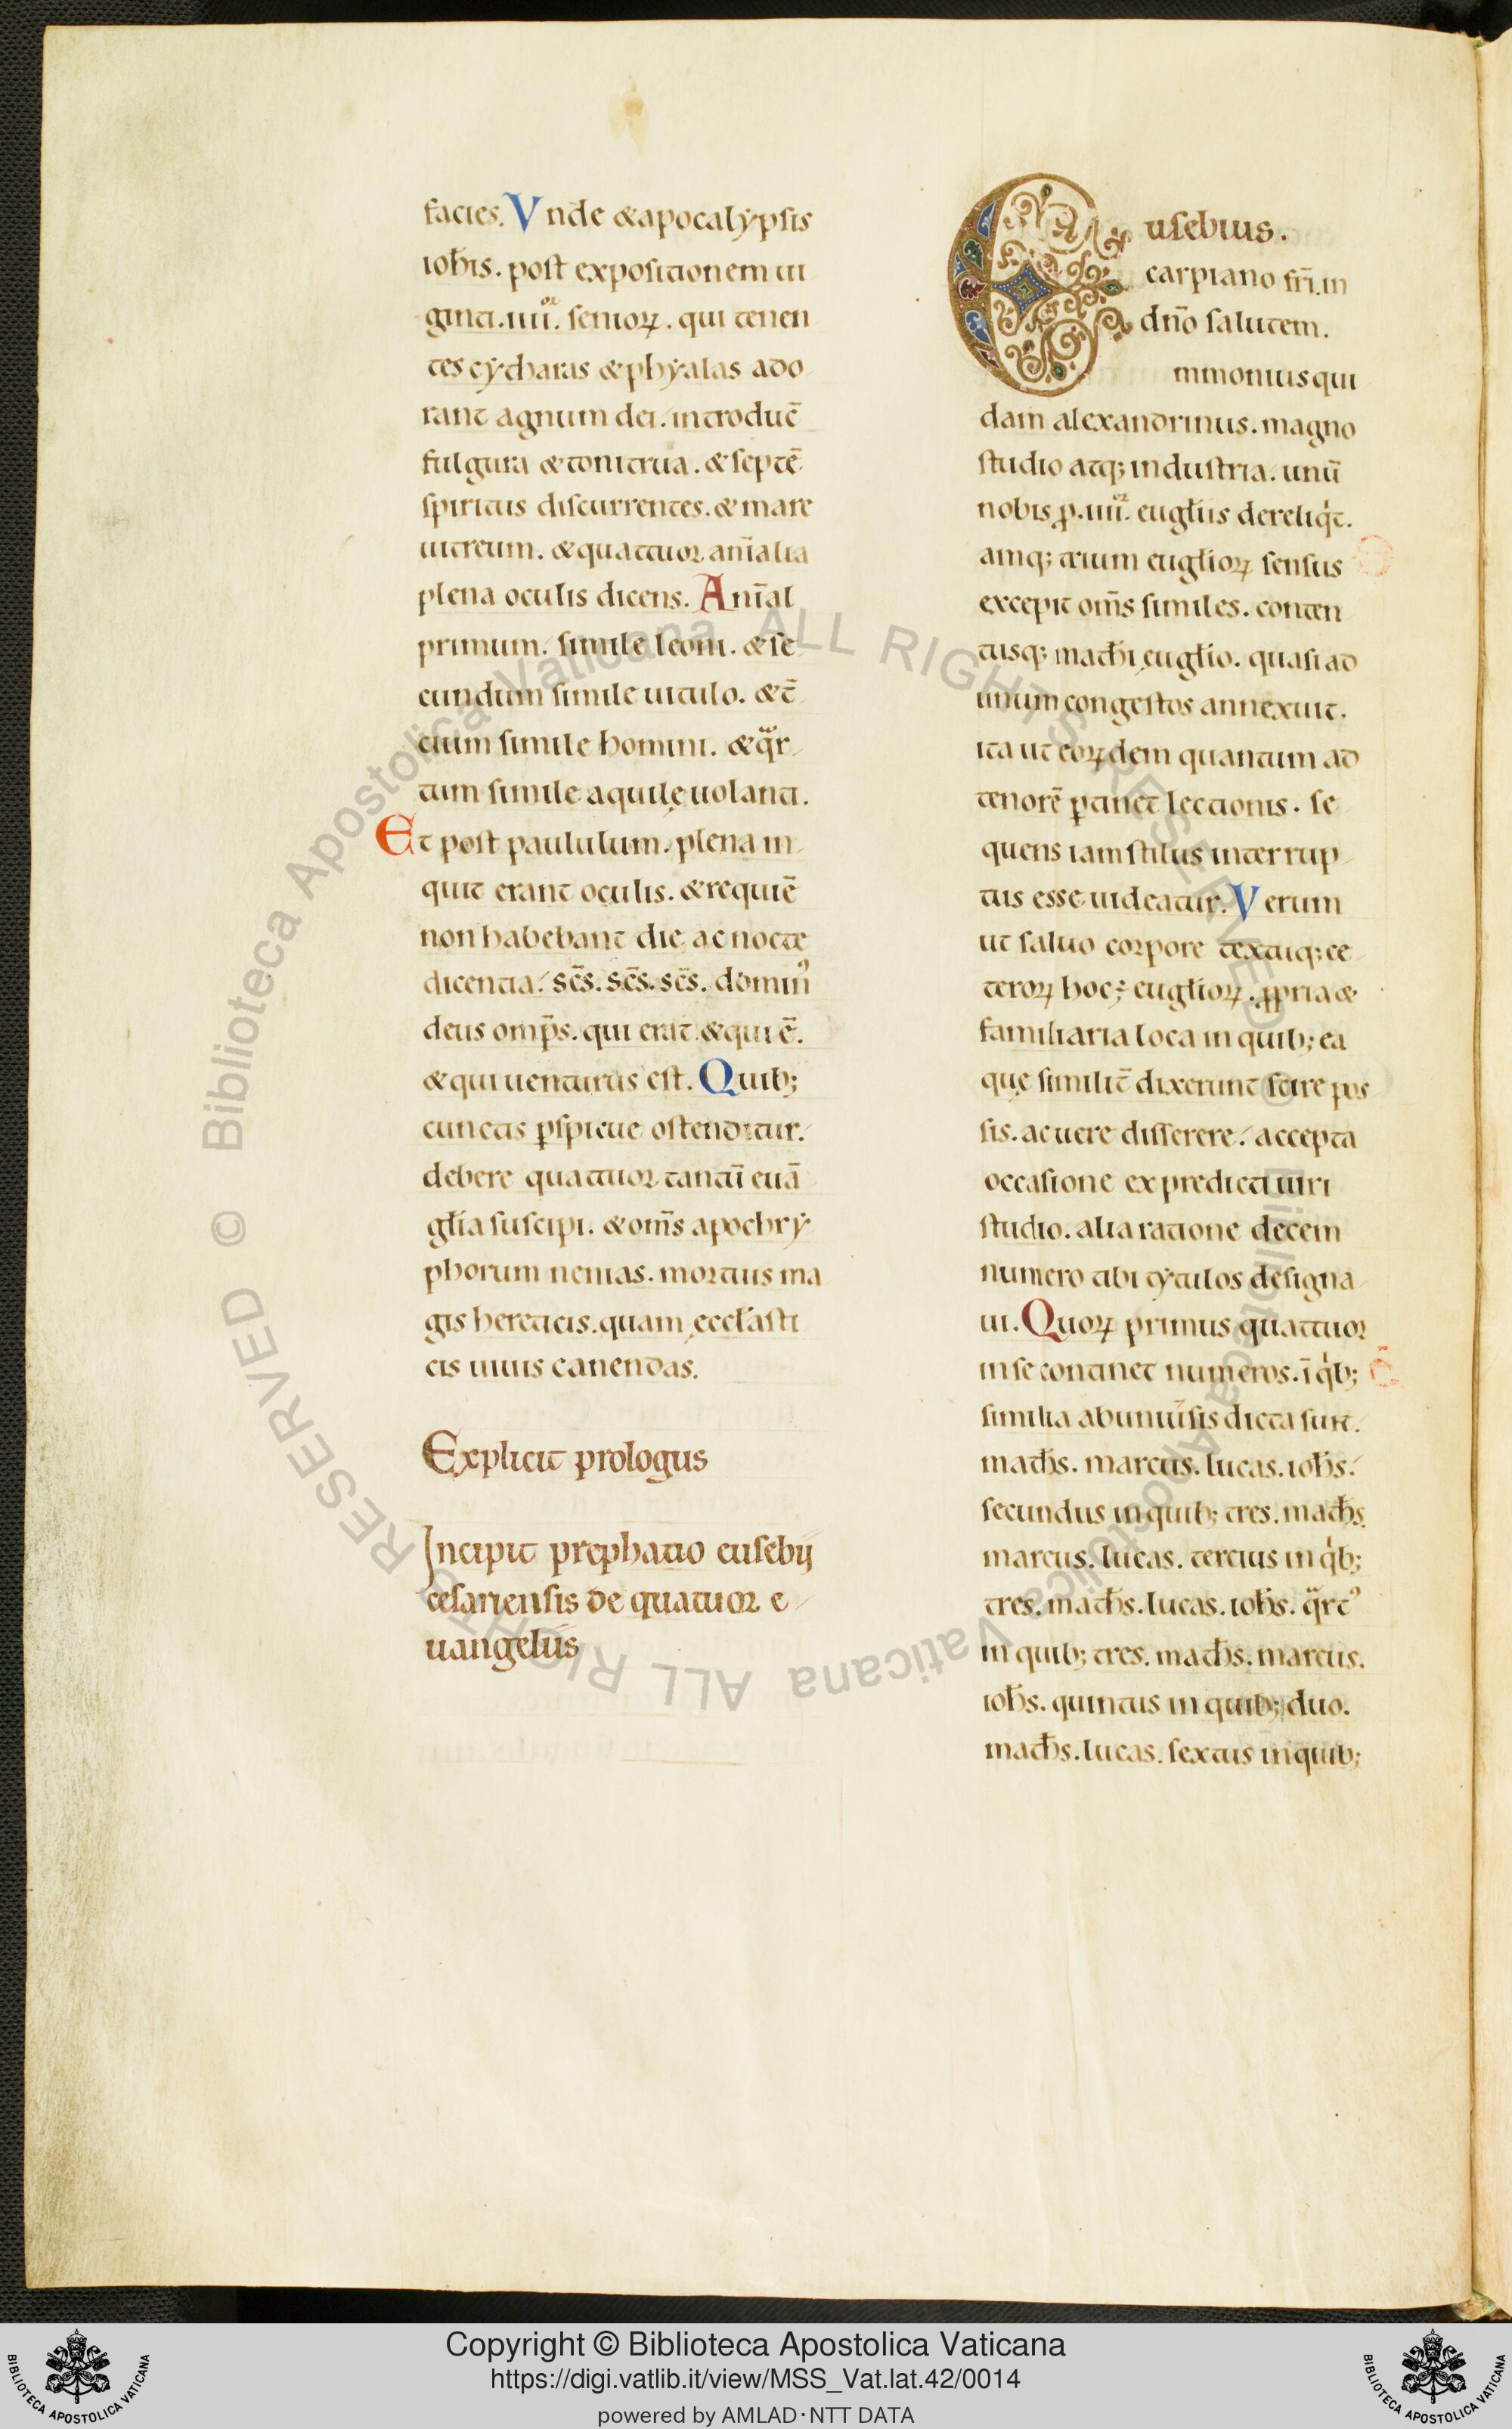 facies. Vnde & apocalypsis
ioħis. post expositionem ui
ginti .iiiior. senioꝝ. qui tenen
tes cytharas & phyalas ado
rant agnum dei. introducē
fulgura & tonitrua. & septē
spiritus discurrentes. & mare
uitreum. & quattuor anīalia
plena oculis dicens. Anīal
primum. simile leoni. & se
cundum simile uitulo. & t̄
cium simile homini. & qͣr
tum simile aquilę uolanti.
Et post paululum. plena in
quit erant oculis. & requiē
non habebant die ac nocte
dicentia. sc̄s. sc̄s. sc̄s. dominꝰ
deus omp̄s. qui erat. & qui ē.
& qui uenturus est. Quib;
cunctis ꝑspicue ostenditur.
debere quattuor tantū euā
gl̄ia suscipi. & om̄s apochry
phorum nenias. mortuis ma
gis hereticis. quam ęccl̄asti
cis uiuis canendas.
Explicit prologus
Incipit prephatio eusebij
cesariensis de quatuor e
uangeliis
Eusebius.
carpiano fr̄i. in
dn̄o salutem.
mmonius qui
dam alexandrinus. magno
studio atq; industria. unū
nobis ꝓ .iiiior. eugl̄iis dereliqͥt.
amq; trium eugl̄ioꝝ sensus
excepit om̄s similes. conten
tusq; math̄i eugl̄io. quasi ad
unum congestos annexuit.
ita ut eoꝝdem quantum ad
tenorē ꝑtinet lectionis. se
quens iam stilus interrup
tus esse uideatur. Verum
ut saluo corpore textuiq; ce
teroꝝ hoc; eugl̄ioꝝ. ꝓpria &
familiaria loca in quib; ea
quę similit̄ dixerunt scire pos
sis. ac uere disserere. accepta
occasione ex predicti uiri
studio. alia ratione decem
numero tibi tytulos designa
ui. Quoꝝ primus quattuor
in se continet numeros. ī qͥb;
similia ab uniūsis dicta sunt.
math̄s. marcus. lucas. ioħs.
secundus in quib; tres. math̄s
marcus. lucas. tercius in qͥb;
tres. math̄s. lucas. ioħs. qͣrtꝰ
in quib; tres. math̄s. marcus.
ioħs. quintus in quib; duo.
math̄s. lucas. sextus in quib;
© Biblioteca Apostolica Vaticana ALL RIGHTS RESERVED © Biblioteca Apostolica Vaticana ALL RIGHTS RESERVED
Copyright © Biblioteca Apostolica Vaticana
https://digi.vatlib.it/view/MSS_Vat.lat.42/0014
powered by AMLAD·NTT DATA
BIBLIOTECA APOSTOLICA VATICANA
BIBLIOTECA APOSTOLICA VATICANA